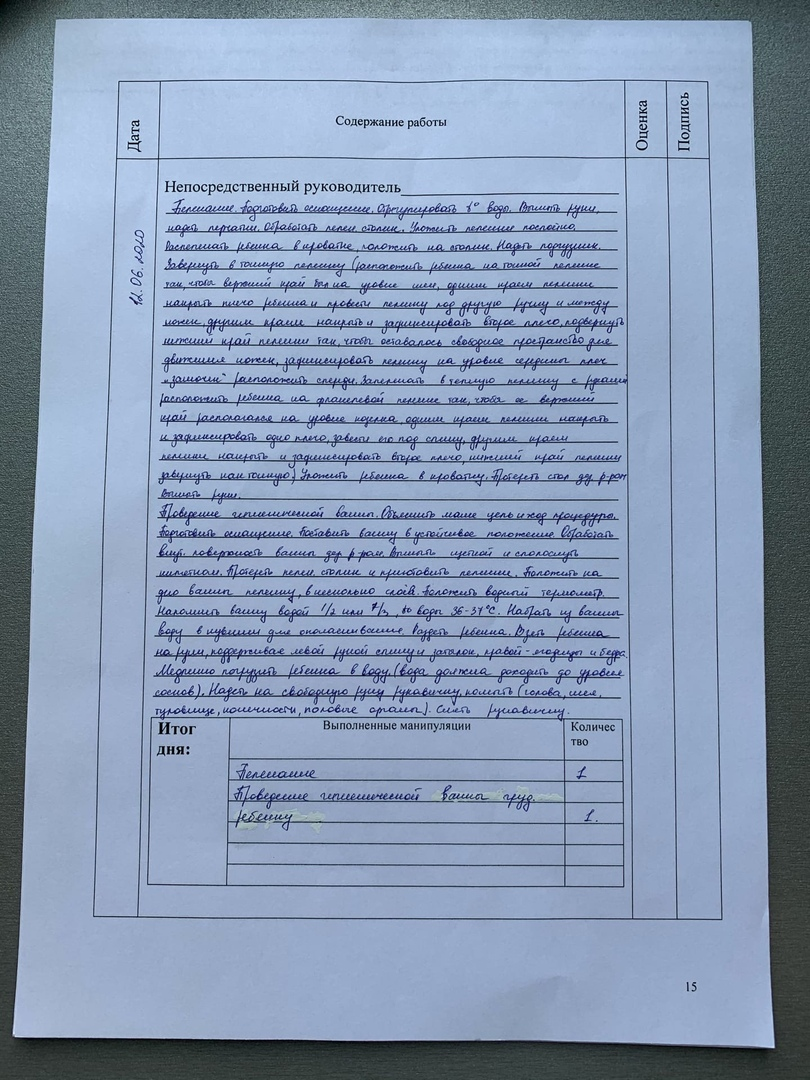 Дата
Содержание работы
Оценка
Подпись
Непосредственный руководитель
12.06.2020
Пеленание. Подготовить оснащение. Отрегулировать t° воды. Вымыть руки,
надеть перчатки. Обработать пелен. столик. Уложить пеленки послойно.
Распеленать ребенка в кроватке, положить на столик. Надеть подгузник.
Завернуть в тонкую пеленку (расположить ребенка на тонкой пеленке
так, чтобы верхний край был на уровне шеи, одним краем пеленки
накрыть плечо ребенка и провести пеленку под другую ручку и между
ножек, другим краем накрыть и зафиксировать второе плечо, подвернуть
нижний край пеленки так, чтобы оставалось свободное пространство для
движения ножек, зафиксировать пеленку на уровне середины плеч
„замочек" расположить спереди. Запеленать в теплую пеленку с ручками
расположить ребенка на фланелевой пеленке так, чтобы ее верхний
край располагался на уровне козелка, одним краем пеленки накрыть
и зафиксировать одно плечо, завести его под спину, другим краем
пеленки накрыть и зафиксировать второе плечо, нижний край пеленки
завернуть как тонкую) Уложить ребенка в кроватку. Протереть стол дез р-ром
Вымыть руки.
Проведение гигиенической ванны. Объяснить маме цель и ход процедуры.
Подготовить оснащение. Поставить ванну в устойчивое положение. Обработать
внут. поверхность ванны дез р-ром. Вымыть щеткой и сполоснуть
кипятком. Протереть пелен. столик и приготовить пеленки. Положить на
дно ванны пеленку, в несколько слоев. Положить водный термометр.
Наполнить ванну водой 1/2 или 1/3, воды 36-37°С. Набрать из ванны
воду в кувшин для ополаскивания. Раздеть ребенка. Взять ребенка
на руки, поддерживая левой рукой спину и затылок, правой - ягодицы и бедра.
Медленно погрузить ребенка в воду. (вода должна доходить до уровня
сосков). Надеть на свободную руку рукавичку, помыть (голова, шея,
туловище, конечности, половые органы). Снять рукавичку.
Итог дня:
Выполненные манипуляции
Количес
тво
Пеленание 1
Проведение гигиенической ванны груд.
ребенку 1.
15